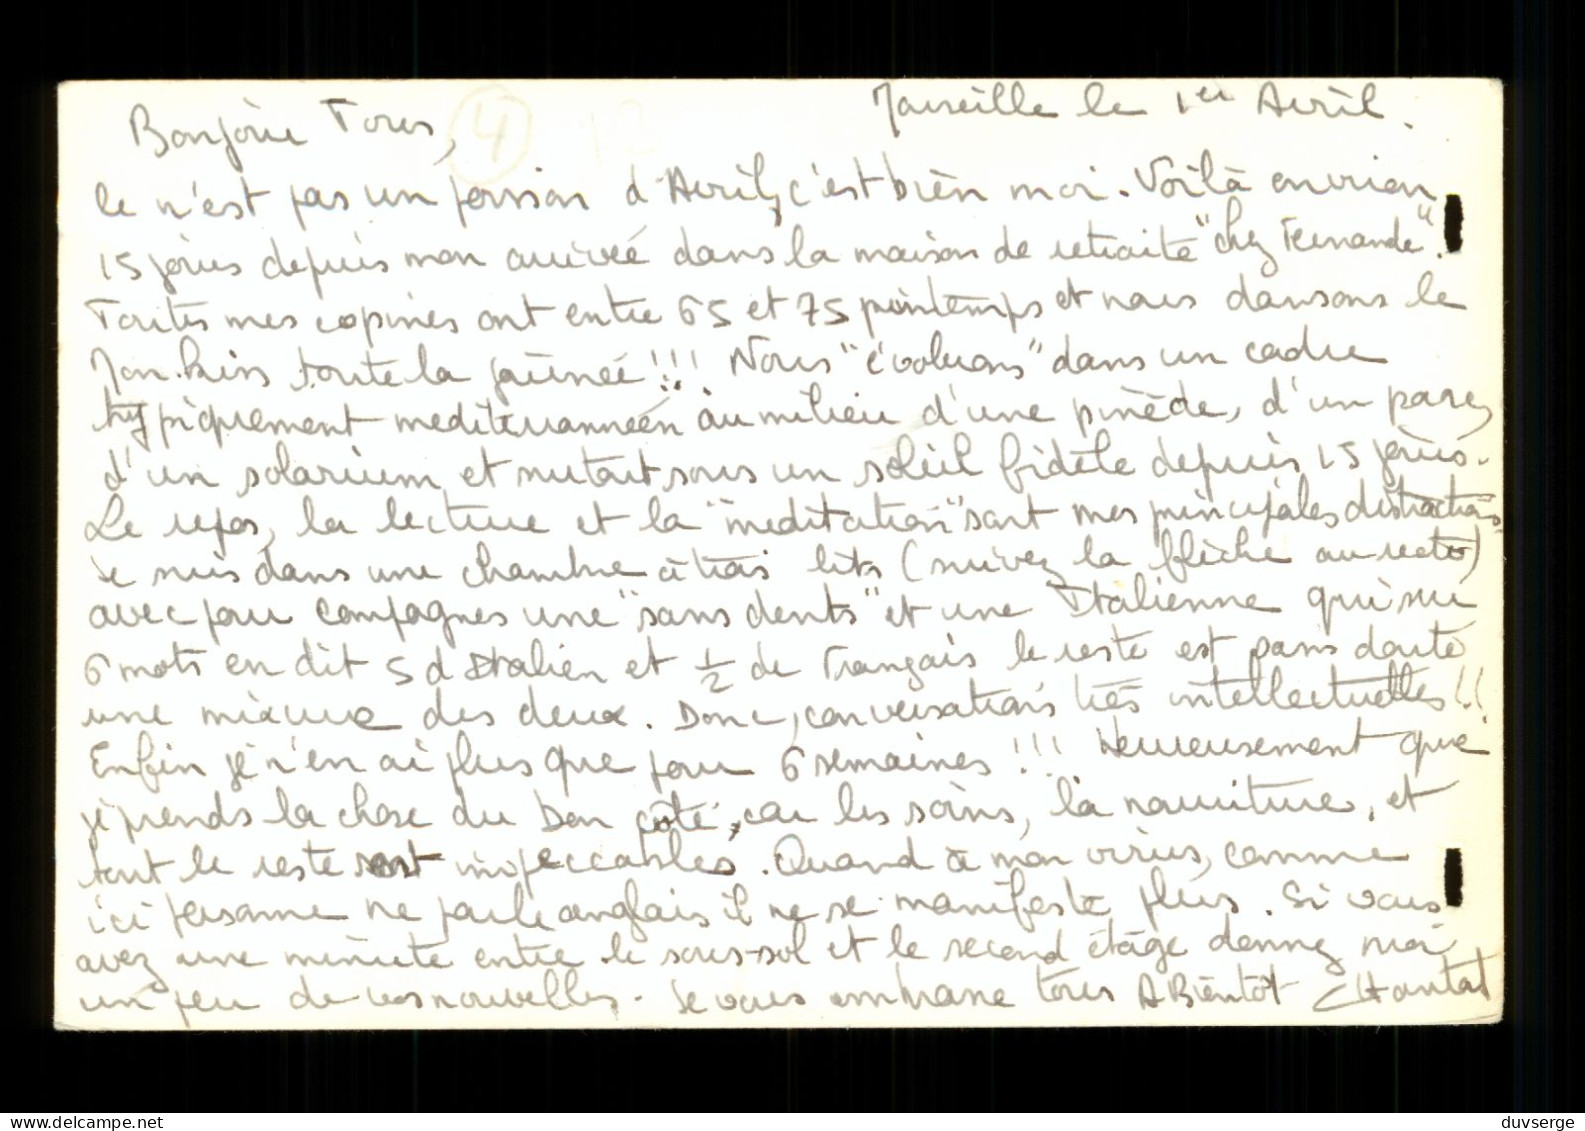 Marseille le 1er Avril.
Bonjour Tous,
Ce n'est pas un poisson d'Avril, c'est bien moi. Voilà environ
15 jours depuis mon arrivée dans la maison de retraite "chez Fernande".
Toutes mes copines ont entre 65 et 75 printemps et nous dansons le
toute la journée!!! Nous "évoluons" dans un cadre
typiquement mediterrannéen au milieu d'une pinède, d'un parc,
d'un solarium et surtout sous un soleil fidèle depuis 15 jours.
Le repos, la lecture et la "meditation" sont mes principales distractions
Je suis dans une chambre à trois lits (suivez la flèche au recto)
avec pour compagnes une "sans dents" et une Italienne qui sur
6 mots en dit 5 d'Italien et 1/2 de Français le reste est sans doute
une mixture des deux. Donc, conversations très intellectuelles!!
Enfin je n'en ai plus que pour 6 semaines!!! Heureusement que
je prends la chose du bon côté, car les soins, la nourriture, et
tout le reste sont impeccables. Quand à mon virus, comme
ici personne ne parle anglais il ne se manifeste plus. Si vous
avez une minute entre le sous-sol et le second étage donnez moi
un peu de vos nouvelles. Je vous embrasse tous A Bientôt Chantal
4
delcampe.net
duvserge